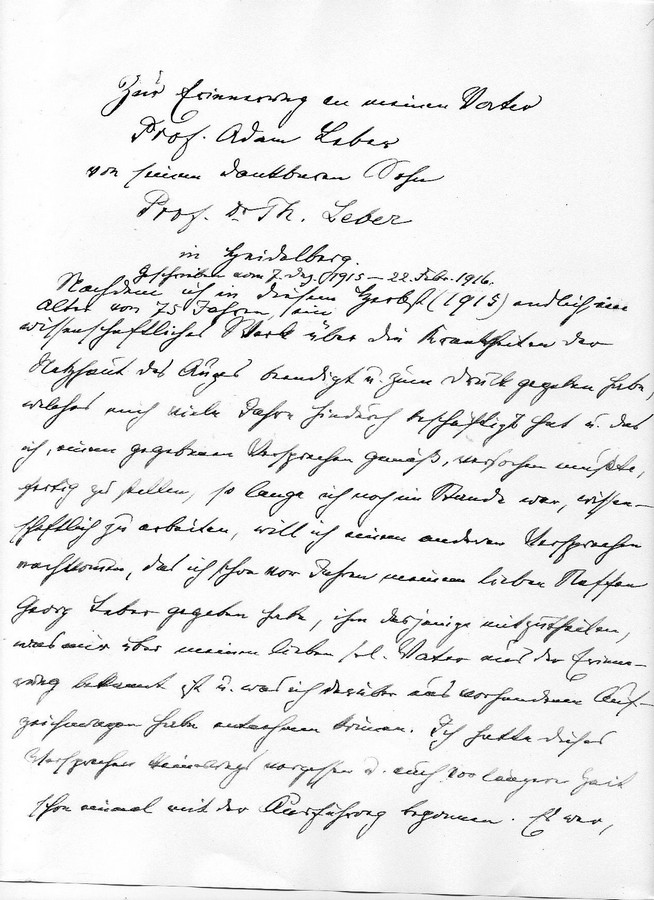 Zur Erinnerung an meinen Vater
Prof. Adam Leber
von seinem dankbaren Sohn
Prof. Dr. Th. Leber
in Heidelberg.
Geschrieben vom 7. Dez. 1915 – 22. Febr. 1916.
Nachdem ich in diesem Herbst (1915) endlich im
Alter von 75 Jahren, ein
wissenschaftliches Werk über die Krankheiten der
Netzhaut des Auges beendigt u. zum Druck gegeben habe,
welches mich viele Jahre hindurch beschäftigt hat u. das
ich, einem gegebenen Versprechen gemäß, versuchen mußte,
fertig zu stellen, so lange ich noch im Stande war, wissen-
schaftlich zu arbeiten, will ich einem anderen Versprechen
nachkommen, das ich schon vor Jahren meinem lieben Neffen
Georg Leber gegeben habe, ihm dasjenige mitzutheilen,
was mir über meinen lieben sel. Vater aus der Erinne-
rung bekannt ist u. was ich darüber aus vorhandenen Auf-
zeichnungen habe entnehmen können. Ich hatte dieses
Versprechen keineswegs vergessen u. auch vor längerer Zeit
schon einmal mit der Ausführung begonnen. Es war,